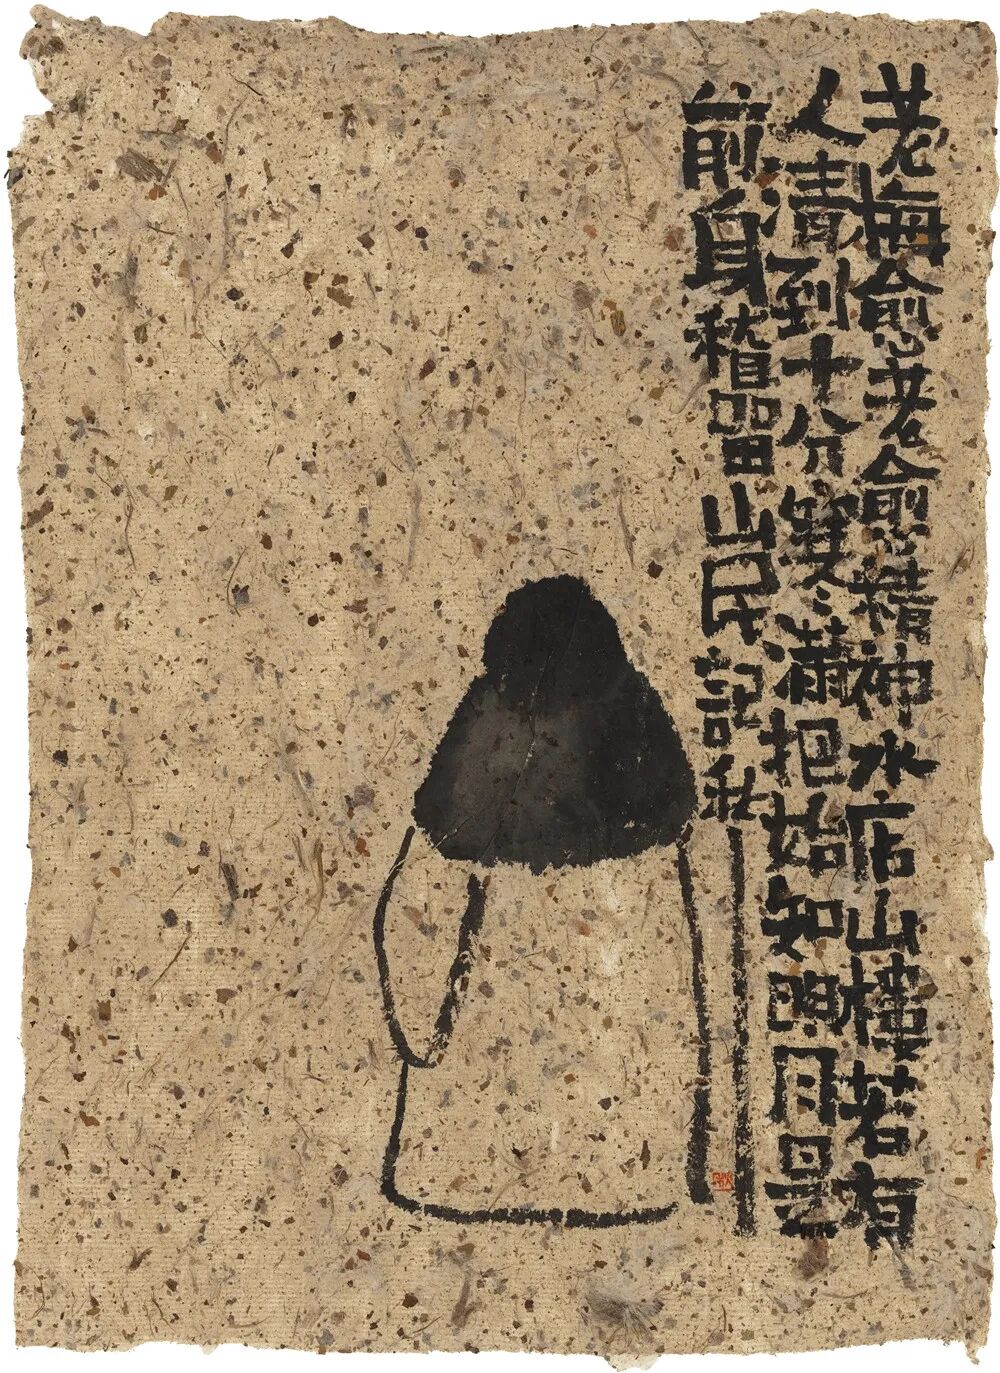 老梅愈老愈精神水店山樓若有
人清到十分寒滿把始知明月是
前身稽留山民記